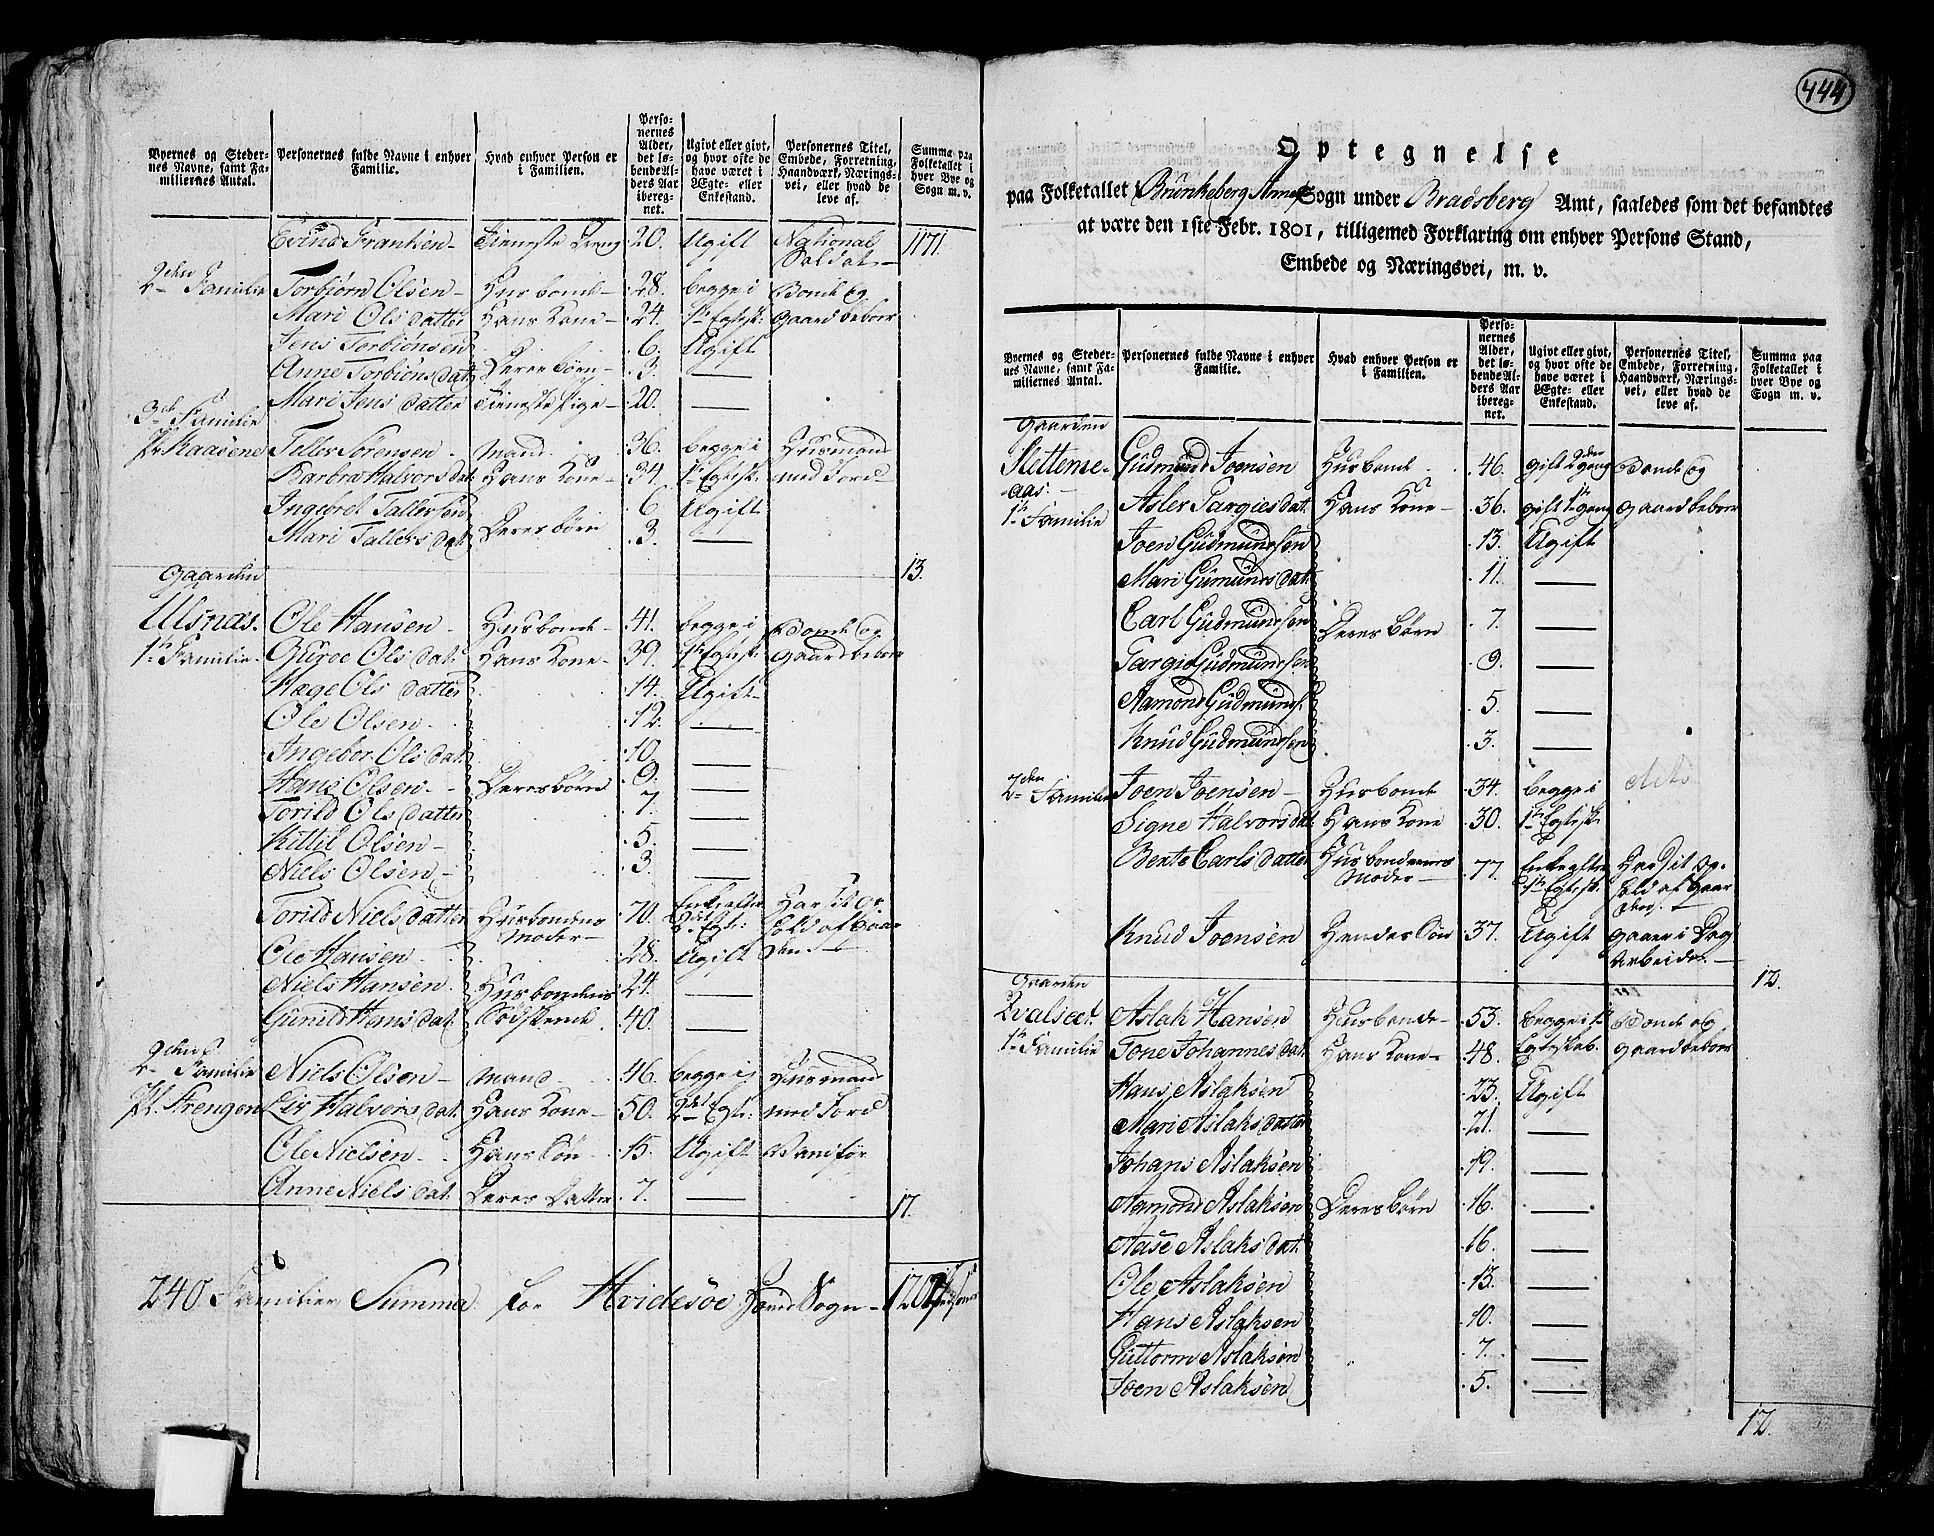 Byernes og Steder-
nes Navne, samt Fa-
miliernes Antal.
Personernes fulde Navne i enhver
Familie.
Hvad enhver Person er
i Familien.
Perso-
nernes
Alder,
det lø-
bende Al-
ders Aar
iberegnet.
Ugivt eller givt,
og hvor ofte de
have været i
Ægte- eller
Enkestand.
Personernes Titel,
Embede, Forretning,
Haandværk, Nærings-
vei, eller hvad de
leve af.
Summa paa
Folketallet i
hver Bye og
Sogn m. v.
Evind Frantzen Tieneste Dreng 20. Ugift National Soldat 1171.
2den Familie Torbiørn Olsen Husbonde 28. begge i Bonde og
Mari Olsdatter Hans Kone 24. 1te Egtesk: Gaardbeboer
Jens Torbiønsen 6. Ugift
Anne Torbiønsdatt Deres børn 3. —
Mari Jensdatter Tieneste Pige 20. —
3de Familie
Pl. Kaasene Tellev Sørensen Mand 36. begge i Huusmand
Barbra Halvorsdat. Hans Kone 34. 1te Egtesk: med Jord
Ingebret Tallefsen 6 Ugift
Mari Tallefsdat. Deres børn 3. —
13.
Gaarden
Ulsnæs. Ole Hansen Husbonde 41. begge i Bonde og
1te Familie Guroe Olsdat. Hans Kone 39. 1te Egtesk: Gaardbeboer
Hæge Olsdatter 14. Ugift
Ole Olsen 12. —
Ingebor Olsdat. 10. —
Hans Olsen Deres børn 9. —
Torild Olsdatter 7. —
Kittil Olsen 5. —
Niels Olsen 3. —
Torild Nielsdatter Husbondens Moder 70. Enke efter 2det Egt: Har sit Ophold af Gaarden
Ole Hansen 28. Ugift
Niels Hansen Husbondens 24. —
Gunild Hansdat. Sødskende 40. —
2den Familie Niels Olsen Mand 46. begge i Huusmand
Pl. Strengen Liv Halvorsdat. Hans Kone 50. 2det Egt: med Jord
Ole Nielsen Hans Søn 15. Ugift Vanfør
Anne Nielsdat. Deres Datter 7. —
17.
240 Familier Summa for Hvidesøe Hoved Sogn 1201 Personer
444
Optegnelse
paa Folketallet i Brunkeberg Annex Sogn under Bradsberg Amt, saaledes som det befandtes
at være den 1ste Febr. 1801, tilligemed Forklaring om enhver Persons Stand,
Embede og Næringsvei, m. v.
Byernes og Steder-
nes Navne, samt Fa-
miliernes Antal.
Personernes fulde Navne i enhver
Familie.
Hvad enhver Person er
i Familien.
Perso-
nernes
Alder,
det lø-
bende Al-
ders Aar
iberegnet.
Ugivt eller givt,
og hvor ofte de
have været i
Ægte- eller
Enkestand.
Personernes Titel,
Embede, Forretning,
Haandværk, Nærings-
vei, eller hvad de
leve af.
Summa paa
Folketallet i
hver Bye og
Sogn m. v.
Gaarden
Slettemeaas. Gudmund Joensen Husbonde 46. gift 2den gang Bonde og
1te Familie Asler Targiesdat. Hans Kone 36. gift 1te gang Gaardbeboer
Joen Gudmundsen 13. Ugift
Mari Gumundsdat. 11. —
Carl Gudmundsen Deres børn 7. —
Targie Gudmundsen 9. —
Aamond Gudmunds. 5. —
Knud Gudmundsen 3. —
2den Familie Joen Joensen Husbonde 34. begge i dito
Signe Halvorsdat. Hans Kone 30. 1te Egtesk:
Berte Carlsdatter Husbondenens Moder 77. Enke efter 1te Egtesk: Har sit Ophold af Gaarden.
Knud Joensen Hendes Søn 37. Ugift gaaer i Dag Arbeide.
12.
Gaarden
Qvalsæt. Aslak Hansen Husbonde 53. begge i 1te Bonde og
1te Familie Tone Johannesdat. Hans Kone 48. Egteskab. Gaardbeboer
Hans Aslaksen 23. Ugift
Mari Aslaksdatter 21. —
Johans Aslaksen 19. —
Aamond Aslaksen Deres børn 16. —
Aase Aslaksdat. 16. —
Ole Aslaksen 13. —
Hans Aslaksen 10. —
Guttorm Aslaksen 7. —
Joen Aslaksen 5. —
12.